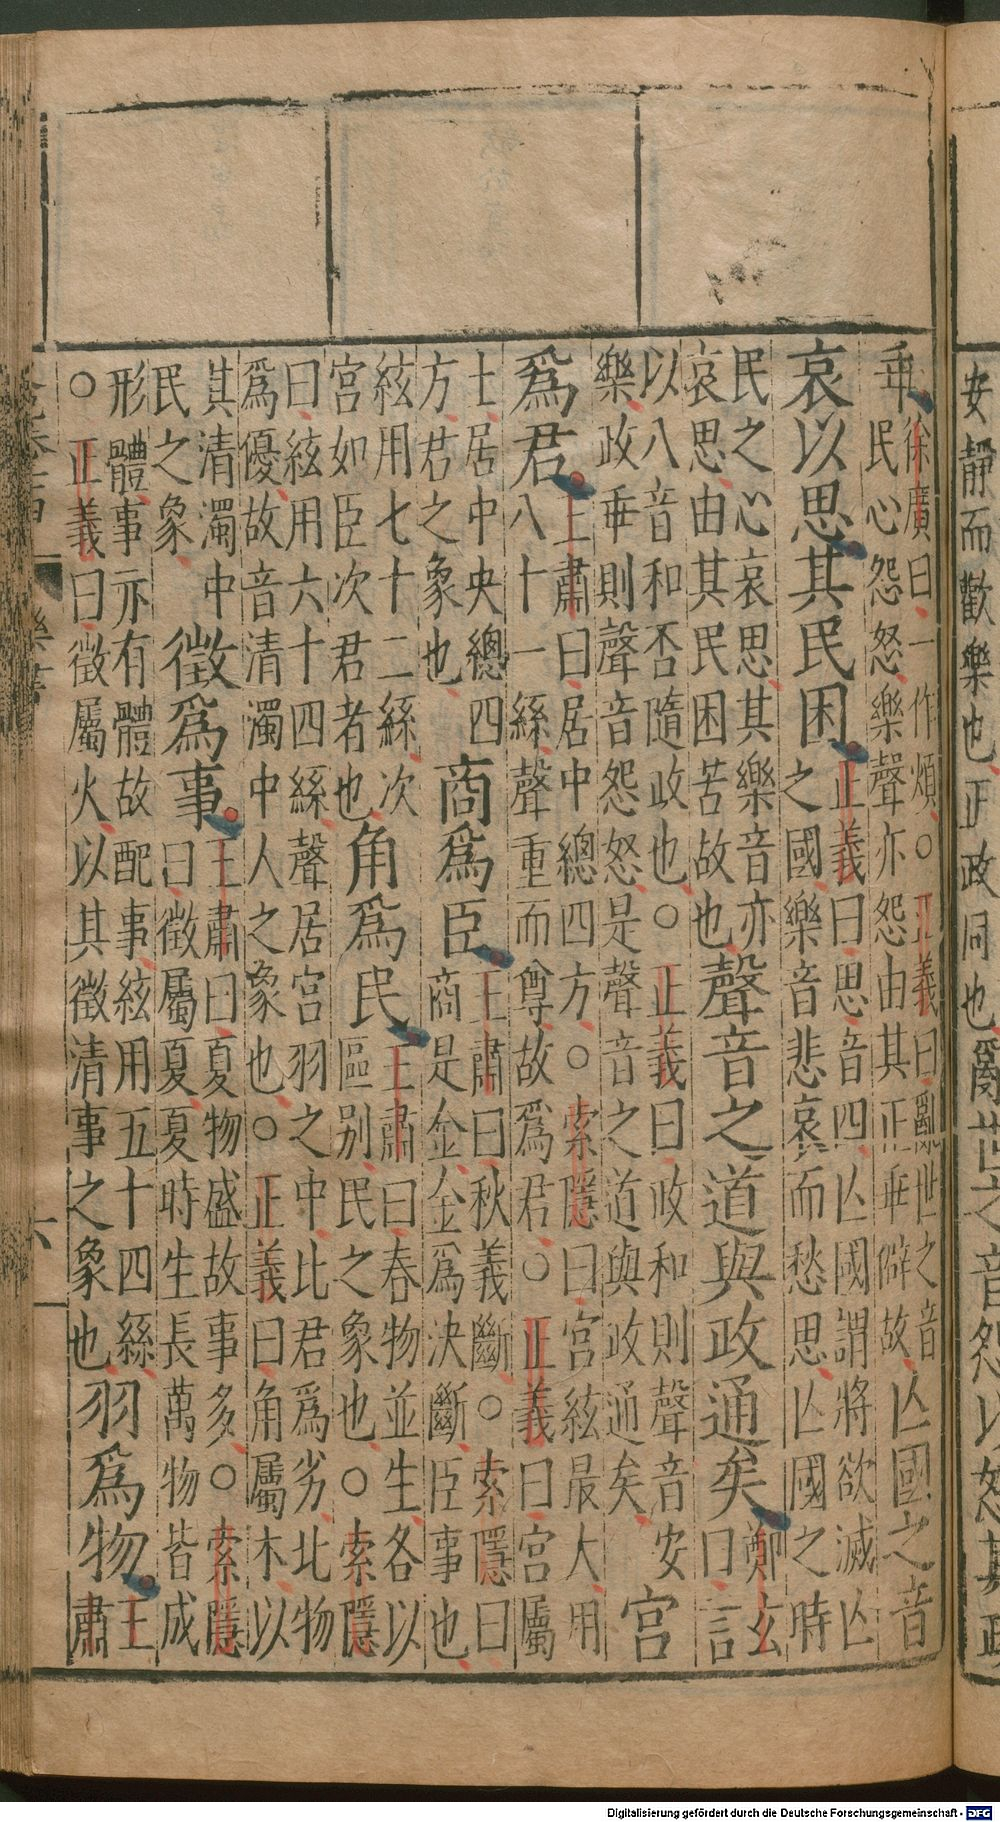 安靜而歡樂也正政同也亂世之音怨以怒其政
乖
徐廣曰一作煩○正義曰亂世之音
民心怨怒樂聲亦怨由其正乖僻故
亡國之音
哀以思其民困
正義曰思音四亡國謂將欲滅亡
之國樂音悲哀而愁思亡國之時
民之心哀思其樂音亦
哀思由其民困苦故也
聲音之道與政通矣
鄭玄
曰言
以八音和否隨政也○正義曰政和則聲音安
樂政乖則聲音怨怒是聲音之道與政通矣
宮
爲君
王肅曰居中總四方○索隱曰宮絃最大用
八十一絲聲重而尊故爲君○正義曰宮屬
土居中央總四
方君之象也
商爲臣
王肅曰秋義斷○索隱曰
商是金金爲決斷臣事也
絃用七十二絲次
宮如臣次君者也
角爲民
王肅曰春物並生各以
區别民之象也○索隱
曰絃用六十四絲聲居宮羽之中比君爲劣比物
爲優故音清濁中人之象也○正義曰角屬木以
其清濁中
民之象
徵爲事
王肅曰夏物盛故事多○索隱
曰徵屬夏夏時生長萬物皆成
形體事亦有體故配事絃用五十四絲
○正義曰徵屬火以其徵清事之象也
羽爲物
王
肅
樂書
六
Digitalisierung gefördert durch die Deutsche Forschungsgemeinschaft - DFG